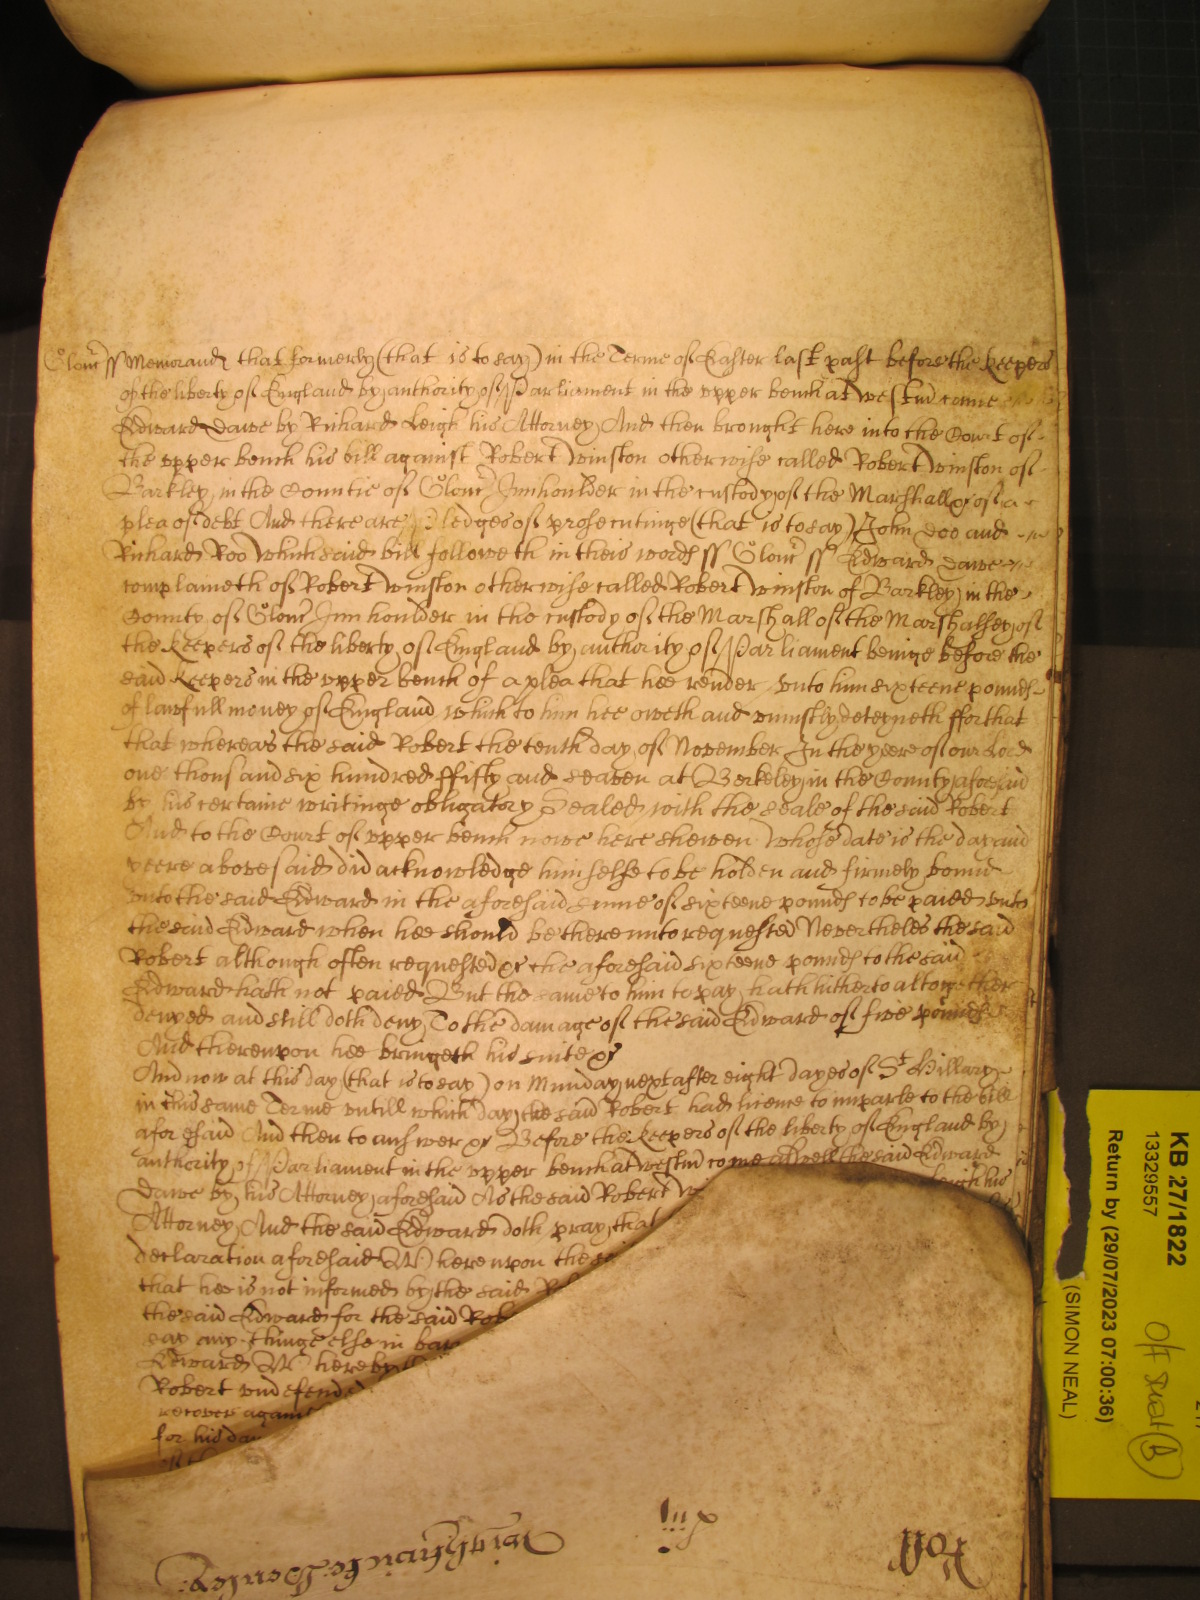 Gloucr ss Memorand that formerly (that is to say) in the Terme of Easter last past before the keepers
of the liberty of England by authority of Parliament in the upper bench at Westm came
Edward Dawe by Richard Leigh his Attorney And then brought here into the Court of
the upper bench his bill against Robert Winston otherwise called Robert Winston of
Barkley in the Countie of Gloucr Innhoulder in the custody of the Marshall &c of a
plea of debt And there are Pledges of prosecutinge (that is to say) John Doo and
Richard Roo Which said bill followeth in theis words ss Gloucr ss Edward Dawe
complaineth of Robert Winston otherwise called Robert Winston of Barkley in the
County of Gloucr Innhoulder in the custody of the Marshall of the Marshalsey of
the keepers of the liberty of England by authority of Parliament beinge before the
said keepers in the upper bench of a plea that hee render unto him sixteene pounds
of lawfull money of England which to him hee oweth and uniustly deteyneth ffor that
that whereas the said Robert the tenth day of November In the yeere of our Lord
one thousand six hundred ffifty and seaven at Berkeley in the County aforesaid
by his certaine writinge obligatory Sealed with the seale of the said Robert
And to the Court of upper bench nowe here shewen Whose date is the day and
yeere abovesaid did acknowledge himselfe to be holden and firmely bound
unto the said Edward in the aforesaid summe of sixteene pounds to be paied unto
the said Edward when hee should be thereunto requested Nevertheles the said
Robert although often requested &c the aforesaid sixteene pounds to the said
Edward hath not paied But the same to him to pay hath hitherto altogether
denyed and still doth deny To the damage of the said Edward of five pounds
And thereupon hee bringeth his suite &c
And now at this day (that is to say) on Munday next after eight dayes of St Hillary
in this same Terme untill which day the said Robert had licence to imparle to the bill
aforesaid And then to answer &c Before the keepers of the liberty of England by
authority of Parliament in the upper bench at Westm come aswell the said Edward
Dawe by his Attorney aforesaid As the said Robert leigh his
Attorney And the said Edward doth pray that
declaration aforesaid Whereupon the
that hee is not informed by the said
the said Edward for the said Rob
say any thinge else in bar
Edward Whereby
Robert undefended
recover against
for his dam
Roll
xiii
KB 27/1822
13329557
Return by (29/07/2023 07:00:36)
(SIMON NEAL)